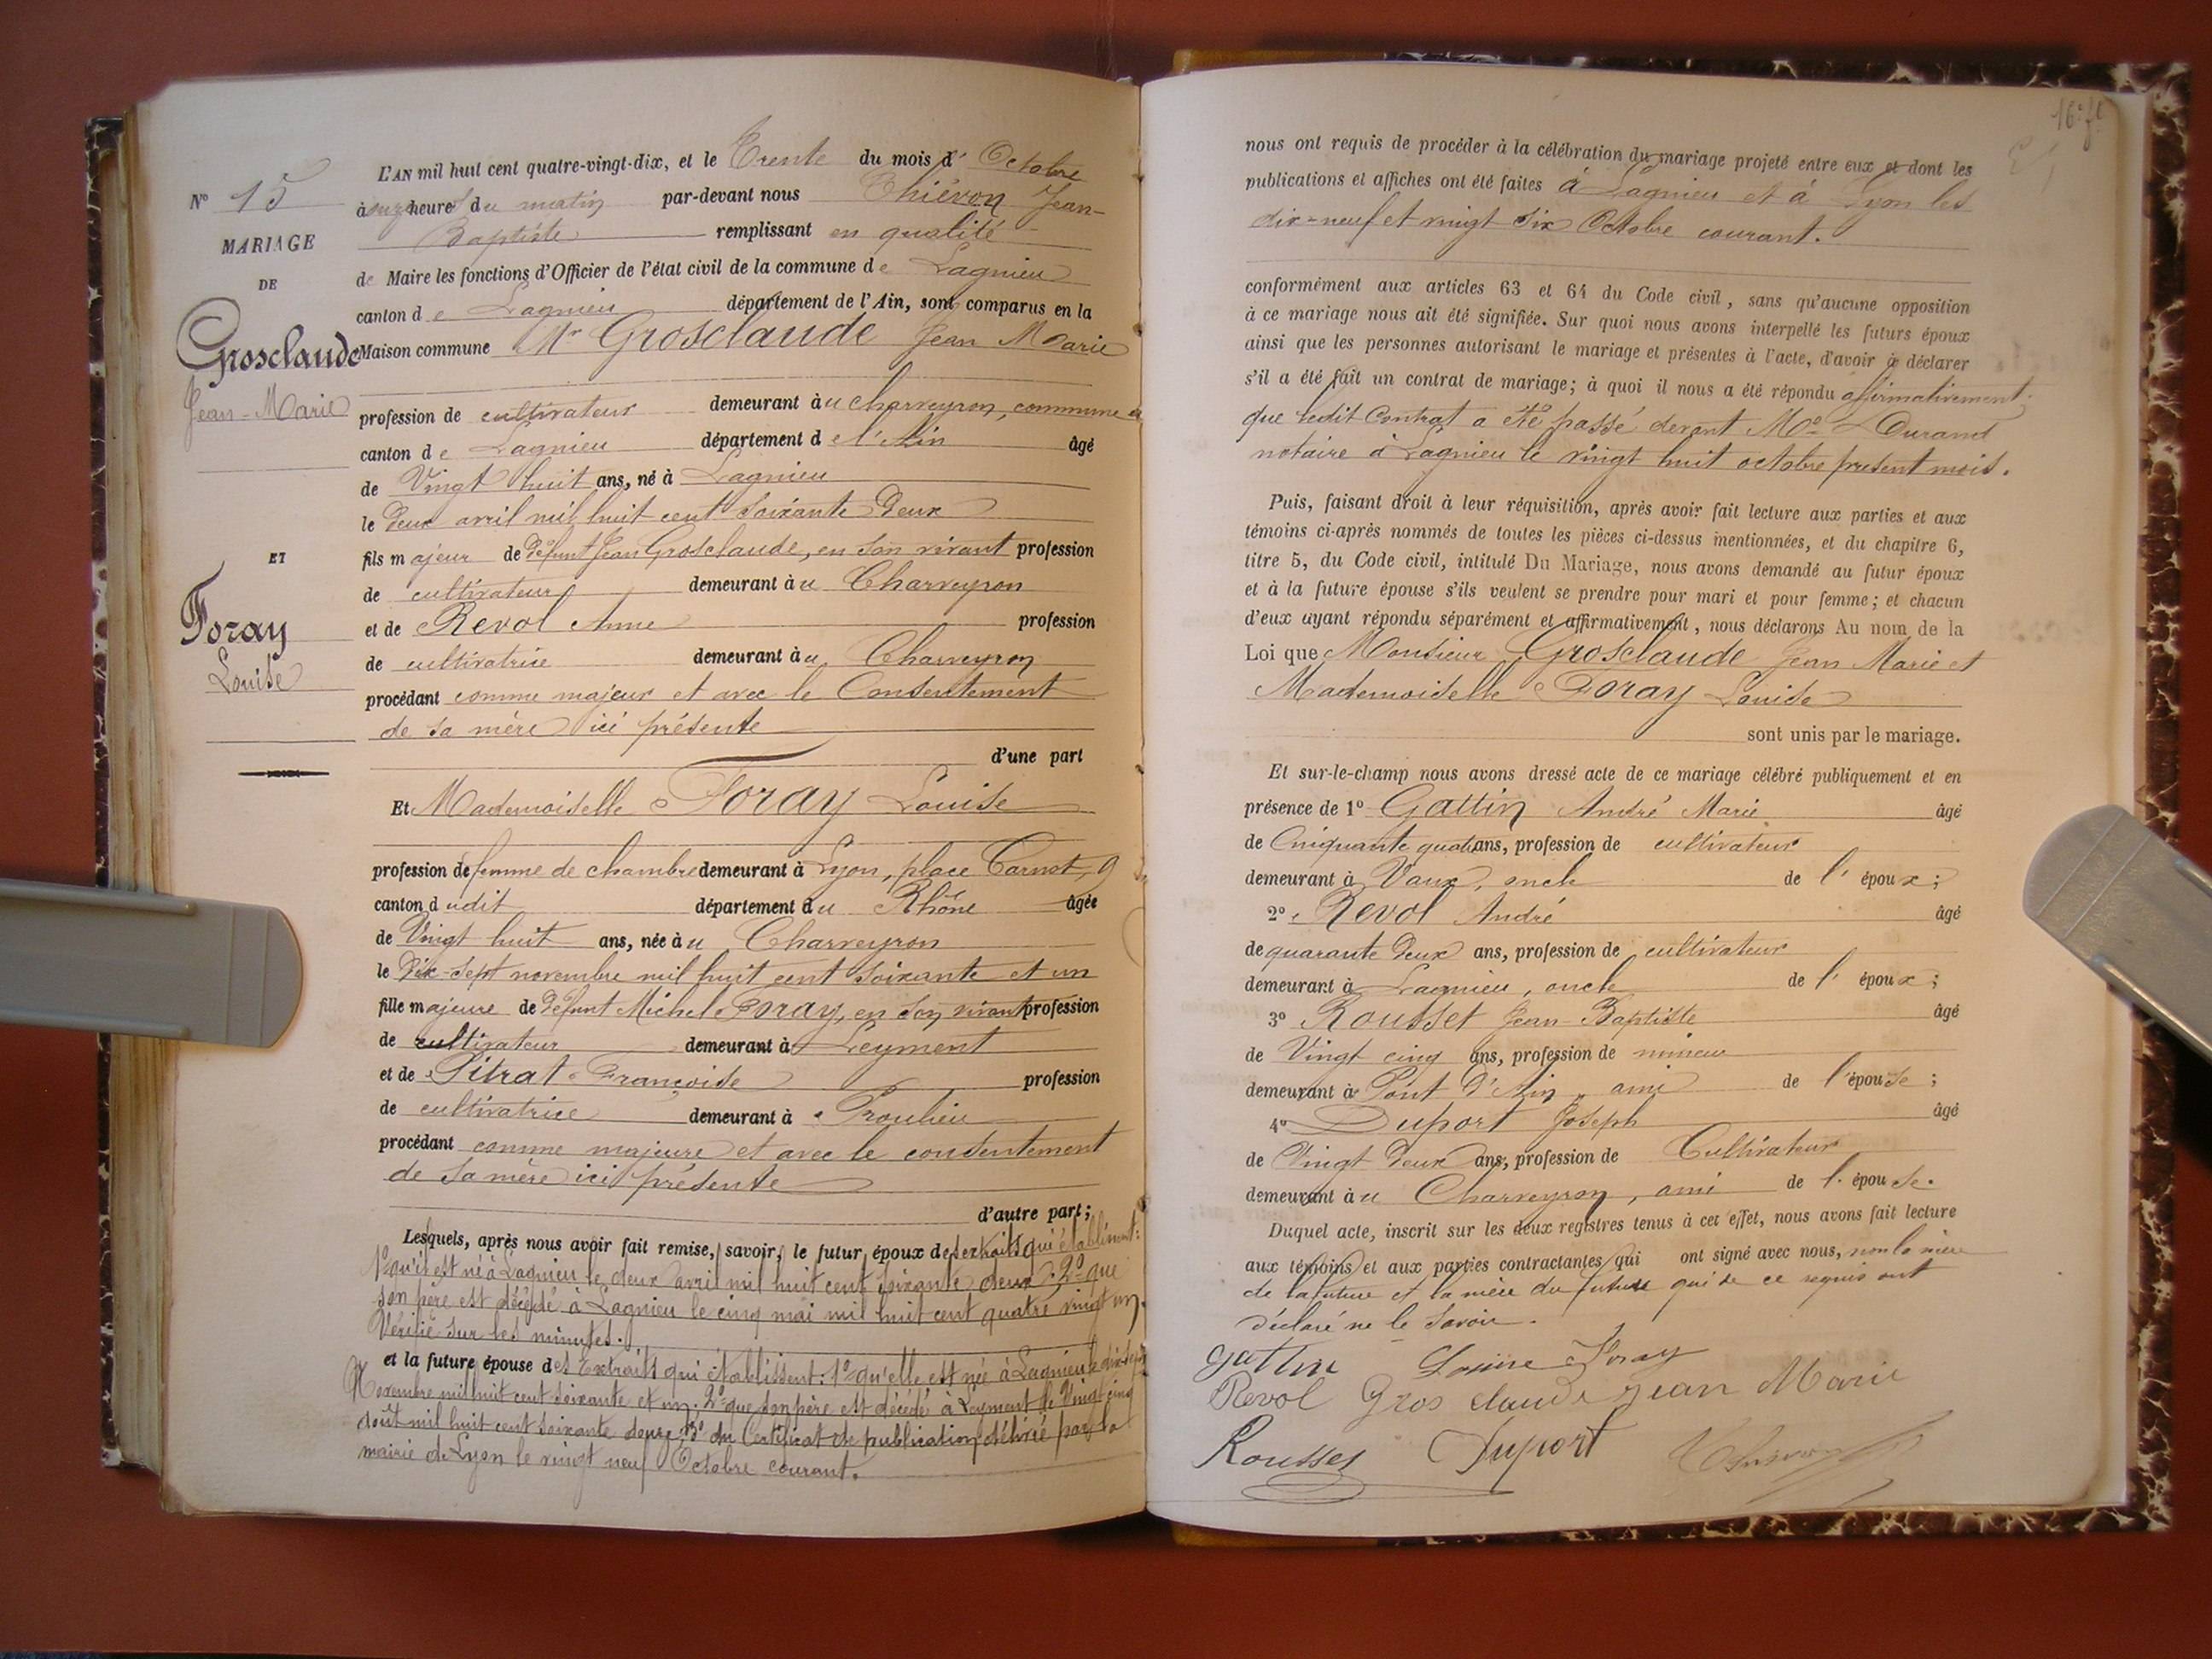 N° 15
MARIAGE
DE
Grosclaude
Jean-Marie
ET
Foray
Louise
L'AN mil huit cent quatre-vingt-dix, et le Trente du mois d' Octobre
à onze heures du matin par-devant nous Thiévon Jean-
Baptiste remplissant en qualité
de Maire les fonctions d'Officier de l'état civil de la commune de Lagnieu
canton de Lagnieu département de l'Ain, sont comparus en la
Maison commune Mr Grosclaude Jean Marie
profession de cultivateur demeurant au Charveyron, commune
canton de Lagnieu département de l'Ain âgé
de Vingt huit ans, né à Lagnieu
le deux avril mil huit cent soixante deux
fils majeur de défunt Jean Grosclaude, en son vivant profession
de cultivateur demeurant au Charveyron
et de Revol Anne profession
de cultivatrice demeurant au Charveyron
procédant comme majeur et avec le Consentement
de sa mère ici présente
d'une part
Et Mademoiselle Foray Louise
profession de femme de chambre demeurant à Lyon, place Carnot, 9
canton dudit département du Rhône âgée
de Vingt huit ans, née au Charveyron
le Dix-sept novembre mil huit cent soixante et un
fille majeure de défunt Michel Foray, en son vivant profession
de cultivateur demeurant à Leyment
et de Pitrat Françoise profession
de cultivatrice demeurant à Proulieu
procédant comme majeure et avec le consentement
de sa mère ici présente
d'autre part;
Lesquels, après nous avoir fait remise, savoir, le futur époux des extraits qui établissent:
1° qu'il est né à Lagnieu le deux avril mil huit cent soixante deux; 2° que
son père est décédé à Lagnieu le cinq mai mil huit cent quatre vingt un.
Vérifié sur les minutes.
et la future épouse des Extraits qui établissent: 1° qu'elle est née à Lagnieu le dix-sept
Novembre mil huit cent soixante et un; 2° que son père est décédé à Leyment le Vingt cinq
août mil huit cent soixante douze; 3° du Certificat de publication délivré par la
mairie de Lyon le vingt neuf Octobre courant.
16e ft
nous ont requis de procéder à la célébration du mariage projeté entre eux et dont les
publications et affiches ont été faites à Lagnieu et à Lyon les
dix-neuf et vingt six Octobre courant.
conformément aux articles 63 et 64 du Code civil, sans qu'aucune opposition
à ce mariage nous ait été signifiée. Sur quoi nous avons interpellé les futurs époux
ainsi que les personnes autorisant le mariage et présentes à l'acte, d'avoir à déclarer
s'il a été fait un contrat de mariage; à quoi il nous a été répondu affirmativement.
que ledit Contrat a été passé devant Me Durand
notaire à Lagnieu le vingt huit octobre présent mois.
Puis, faisant droit à leur réquisition, après avoir fait lecture aux parties et aux
témoins ci-après nommés de toutes les pièces ci-dessus mentionnées, et du chapitre 6,
titre 5, du Code civil, intitulé Du Mariage, nous avons demandé au futur époux
et à la future épouse s'ils veulent se prendre pour mari et pour femme; et chacun
d'eux ayant répondu séparément et affirmativement, nous déclarons Au nom de la
Loi que Monsieur Grosclaude Jean Marie et
Mademoiselle Foray Louise
sont unis par le mariage.
Et sur-le-champ nous avons dressé acte de ce mariage célébré publiquement et en
présence de 1° Gattin André Marie âgé
de Cinquante quatre ans, profession de cultivateur
demeurant à Vaux, oncle de l' époux;
2° Revol André âgé
de quarante deux ans, profession de cultivateur
demeurant à Lagnieu, oncle de l' époux;
3° Rousset Jean-Baptiste âgé
de Vingt cinq ans, profession de mineur
demeurant à Pont d'Ain, ami de l'épouse;
4° Duport Joseph âgé
de Vingt deux ans, profession de Cultivateur
demeurant au Charveyron, ami de l'épouse.
Duquel acte, inscrit sur les deux registres tenus à cet effet, nous avons fait lecture
aux témoins et aux parties contractantes qui ont signé avec nous, non la mère
de la future et la mère du futur qui de ce requis ont
déclaré ne le savoir.
Gattin Louise Foray
Revol Gros claude jean Marie
Rousset Duport Thiévon